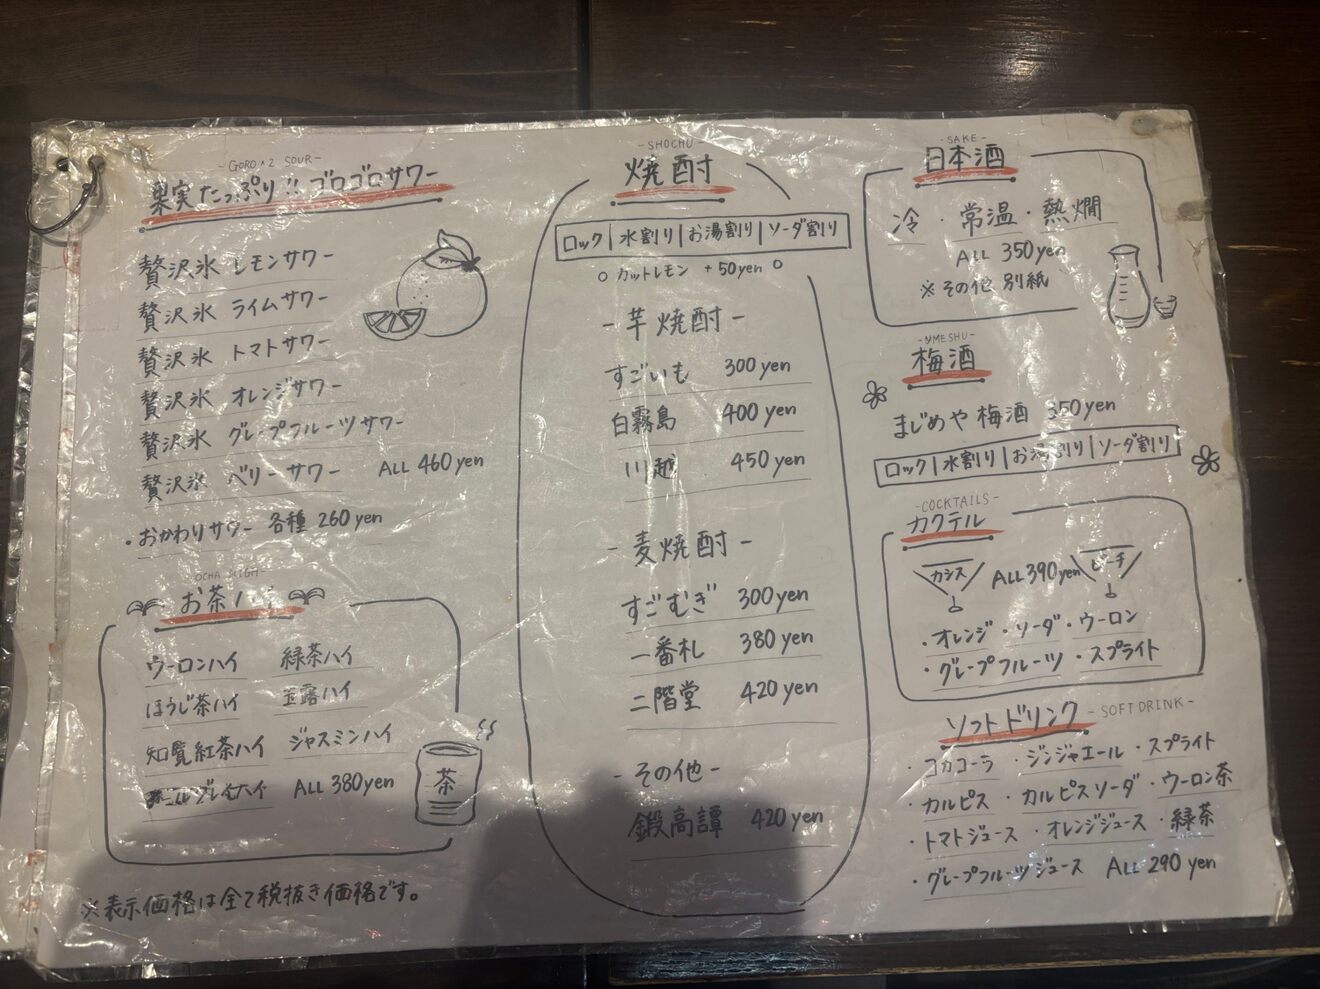 - GORO×2 SOUR -
果実たっぷり!! ゴロゴロサワー
贅沢氷 レモンサワー
贅沢氷 ライムサワー
贅沢氷 トマトサワー
贅沢氷 オレンジサワー
贅沢氷 グレープフルーツサワー
贅沢氷 ベリーサワー ALL 460yen
・おかわりサワー 各種 260yen
OCHA HIGH
お茶ハイ
ウーロンハイ 緑茶ハイ
ほうじ茶ハイ 玉露ハイ
知覧紅茶ハイ ジャスミンハイ
ALL 380yen
茶
※表示価格は全て税抜き価格です。
- SHOCHU -
焼酎
ロック|水割り|お湯割り|ソーダ割り
○ カットレモン +50yen ○
- 芋焼酎 -
すごいも 300yen
白霧島 400yen
川越 450yen
- 麦焼酎 -
すごむぎ 300yen
一番札 380yen
二階堂 420yen
- その他 -
鍛高譚 420yen
- SAKE -
日本酒
冷・常温・熱燗
ALL 350yen
※その他 別紙
- UMESHU -
梅酒
まじめや梅酒 350yen
ロック|水割り|お湯割り|ソーダ割り
- COCKTAILS -
カクテル
カシス ALL 390yen ピーチ
・オレンジ・ソーダ・ウーロン
・グレープフルーツ・スプライト
ソフトドリンク - SOFT DRINK -
・コカコーラ・ジンジャエール・スプライト
・カルピス・カルピスソーダ・ウーロン茶
・トマトジュース・オレンジジュース・緑茶
・グレープフルーツジュース ALL 290yen